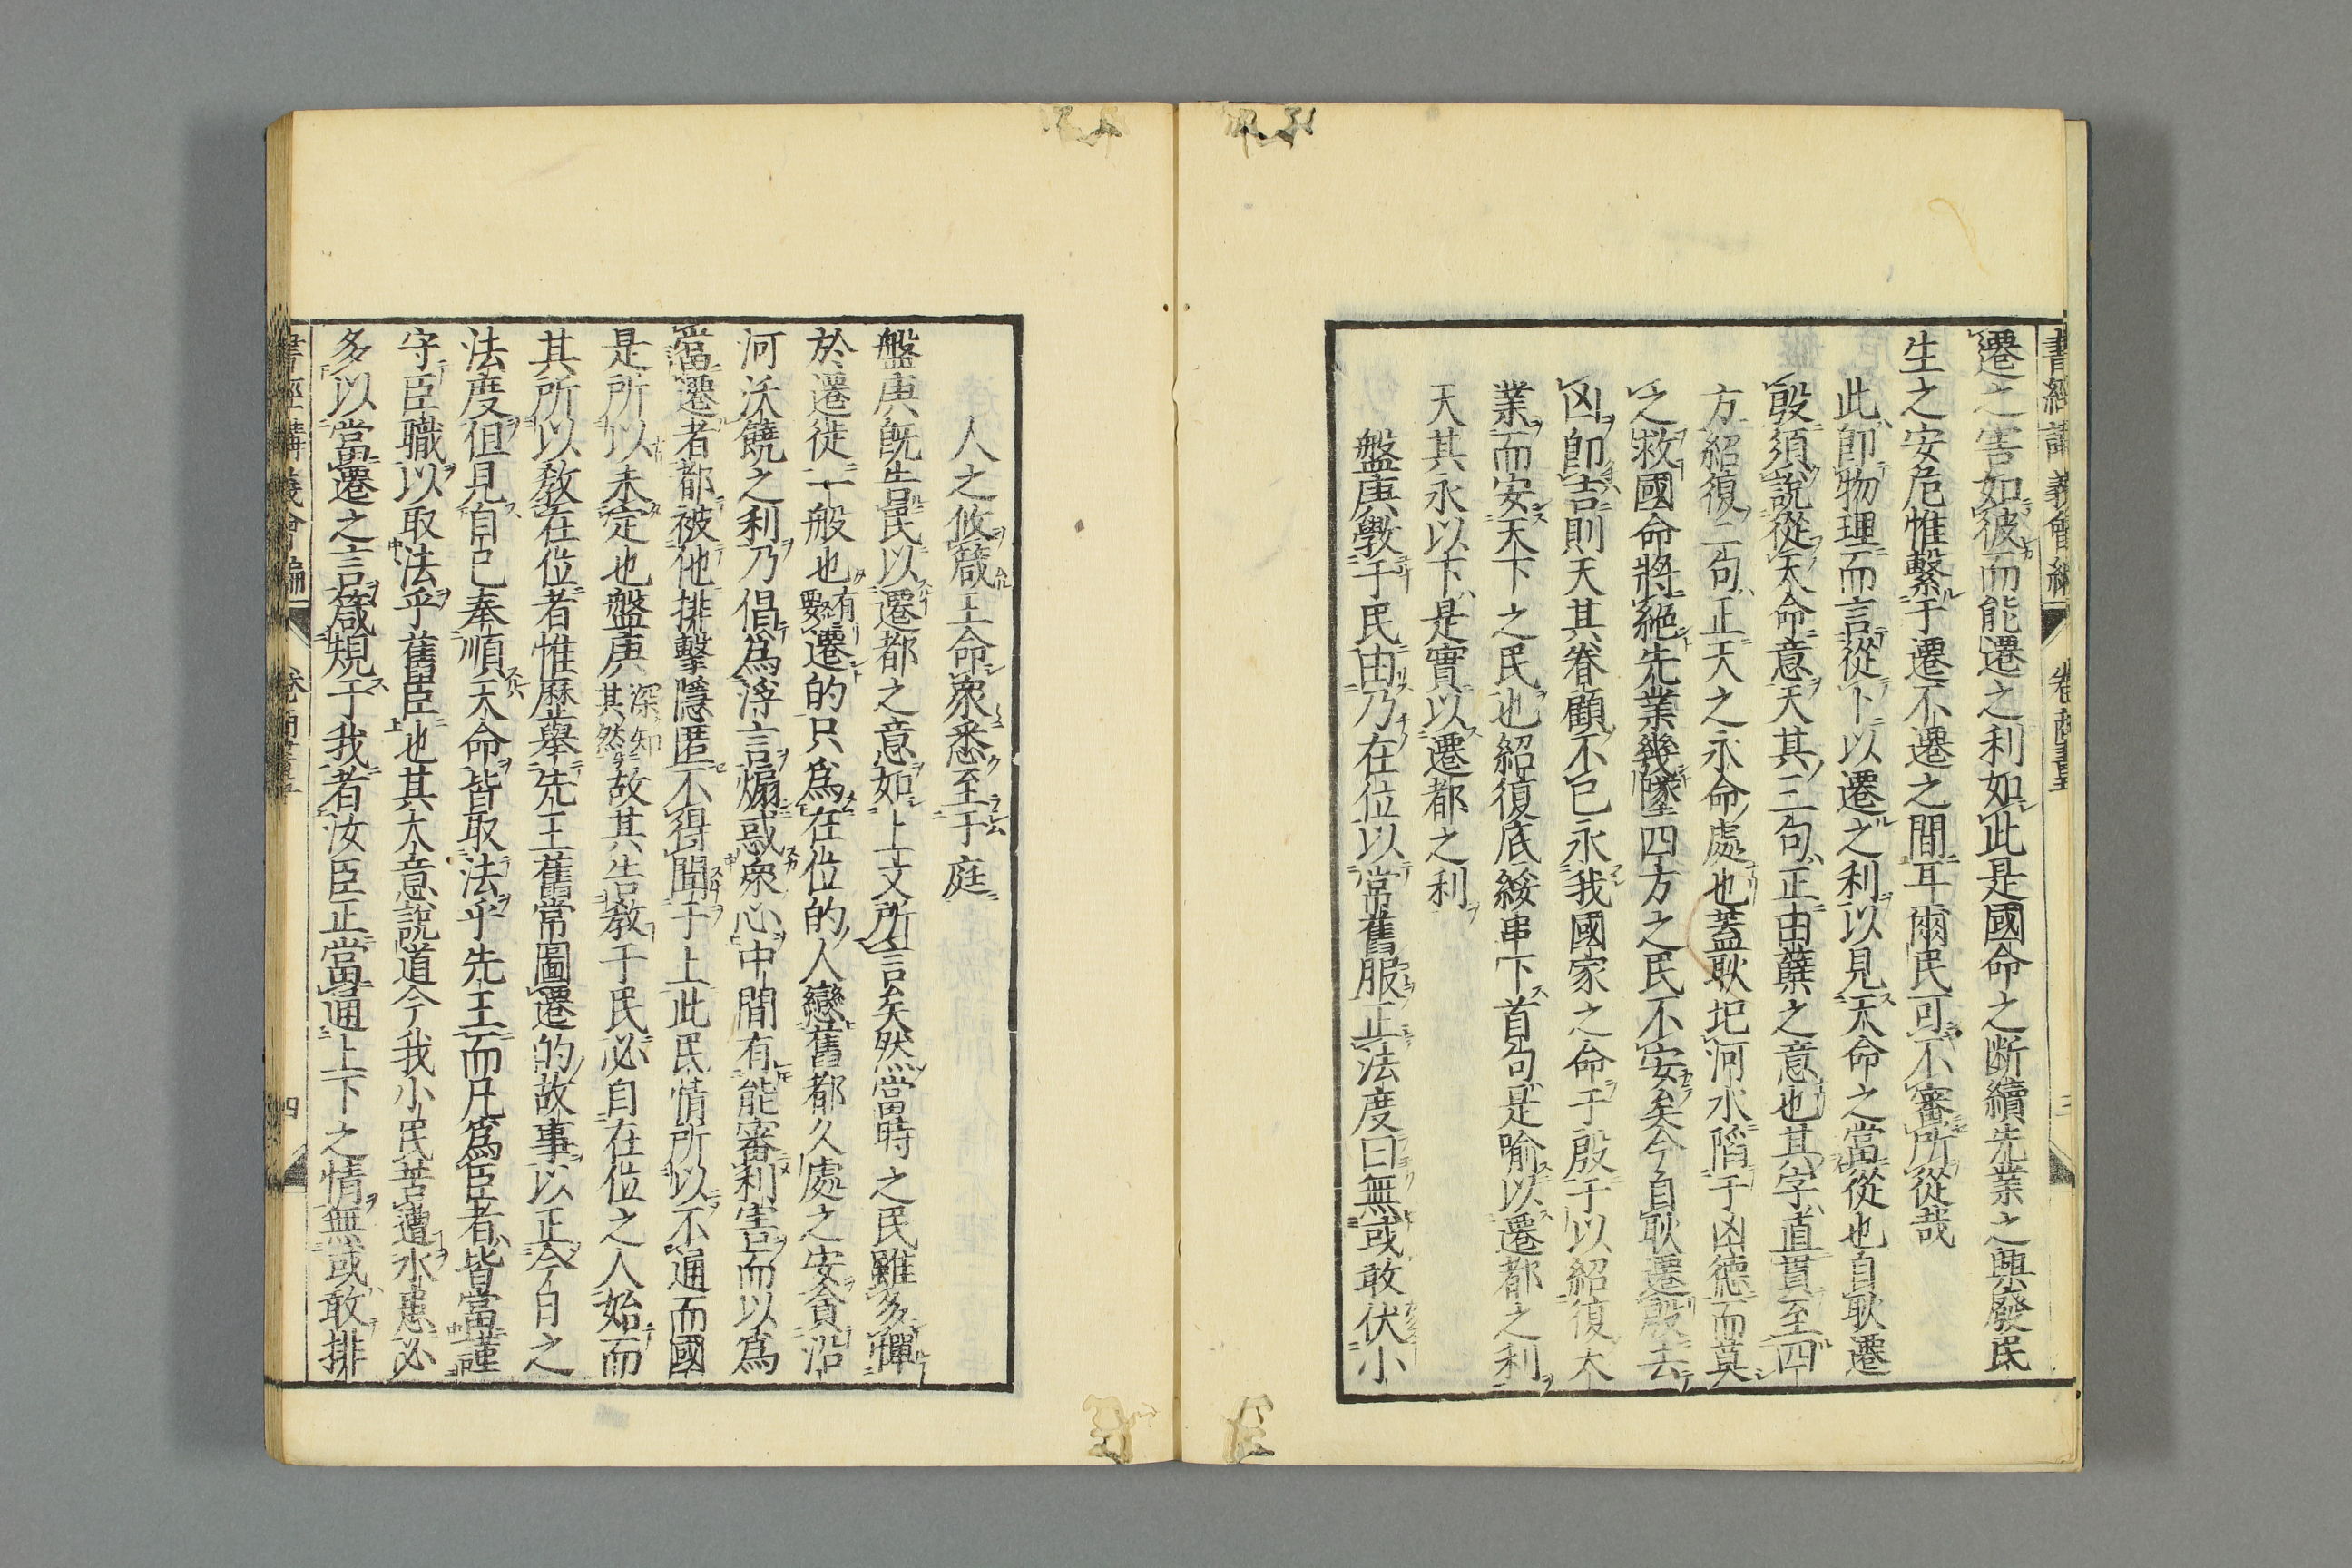 遷之害如彼而能遷之利如此是國命之断續先業之興廢民
生之安危惟繫于遷不遷之間耳爾民可不審所從哉
此卽物理而言從卜以遷之利以見天命之當從也自耿遷
殷須說從天命意天其三句正由蘖之意也其字直貫至四
方紹復二句正天之永命處也蓋耿圯河水陷于凶德而莫
之救國命將絕先業幾墜四方之民不安矣今自耿遷殷去
凶卽吉則天其眷顧不已永我國家之命于殷于以紹復大
業而安天下之民也紹復底綏串下首句是喻以遷都之利
天其永以下是實以遷都之利
盤庚斆于民由乃在位以常舊服正法度曰無或敢伏小
人之攸箴王命衆悉至于庭
盤庚既告民以遷都之意如上文所言矣然當時之民雖多憚
於遷徙一般也有要遷的只爲在位的人戀舊都久處之安貪沿
河沃饒之利乃倡爲浮言煽惑衆心中間有能審利害而以爲
當遷者都被他排擊隱匿不得聞于上此民情所以不通而國
是所以未定也盤庚深知其然故其告敎于民必自在位之人始而
其所以敎在位者惟歷舉先王舊常圖遷的故事以正今日之
法度但見自已奉順天命皆取法乎先王而凡爲臣者皆當謹
守臣職以取法乎舊臣也其大意說道今我小民苦遭水患必
多以當遷之言箴規于我者汝臣正當通上下之情無或敢排
書經講義會編 卷 商書 四